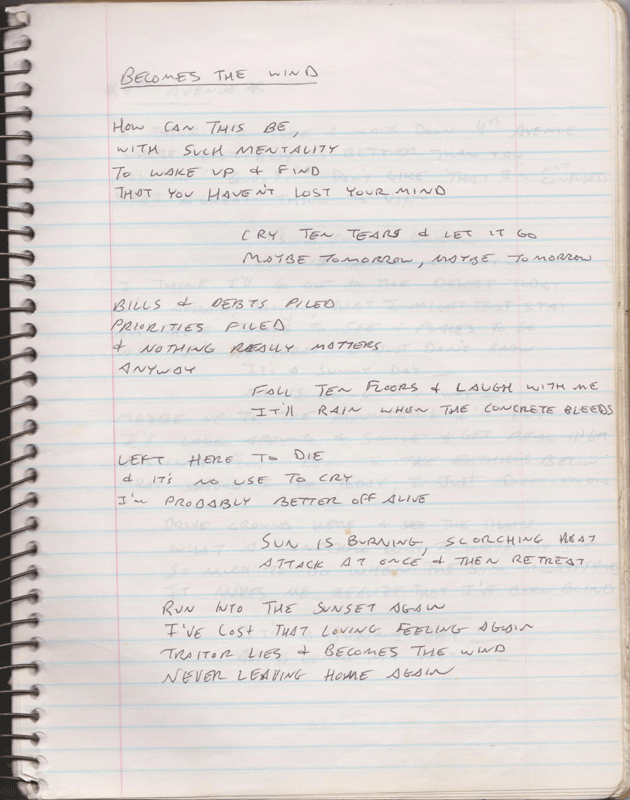 BECOMES THE WIND
HOW CAN THIS BE,
WITH SUCH MENTALITY
TO WAKE UP & FIND
THAT YOU HAVEN'T LOST YOUR MIND
CRY TEN TEARS & LET IT GO
MAYBE TOMORROW, MAYBE TOMORROW
BILLS & DEBTS PILED
PRIORITIES FILED
& NOTHING REALLY MATTERS
ANYWAY
FALL TEN FLOORS & LAUGH WITH ME
IT'LL RAIN WHEN THE CONCRETE BLEEDS
LEFT HERE TO DIE
& IT'S NO USE TO CRY
I'M PROBABLY BETTER OFF ALIVE
SUN IS BURNING, SCORCHING HEAT
ATTACK AT ONCE & THEN RETREAT
RUN INTO THE SUNSET AGAIN
I'VE LOST THAT LOVING FEELING AGAIN
TRAITOR LIES & BECOMES THE WIND
NEVER LEAVING HOME AGAIN